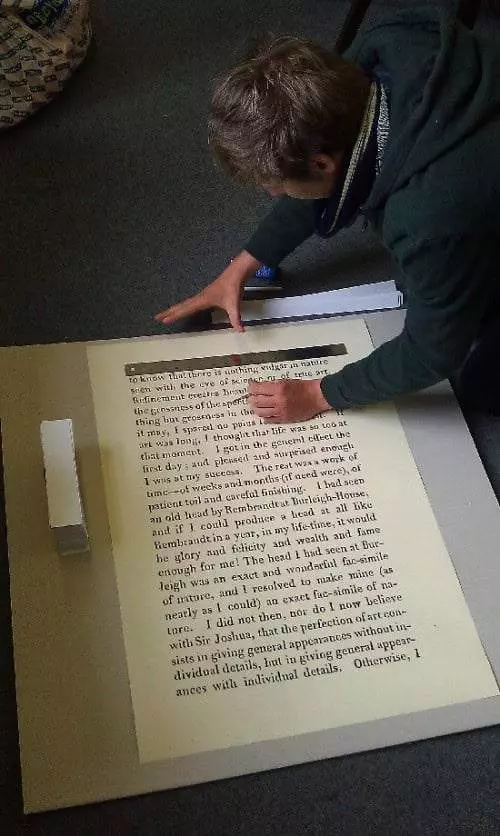 to know that there is nothing vulgar in nature
seen with the eye of science or of true art.
Refinement creates beauty
the grossness of the
thing but grossness in the
it may, I spared no pains
art was long, I thought that life was so too at
that moment. I got in the general effect the
first day; and pleased and surprised enough
I was at my success. The rest was a work of
time—of weeks and months (if need were), of
patient toil and careful finishing. I had seen
an old head by Rembrandt at Burleigh-House,
and if I could produce a head at all like
Rembrandt in a year, in my life-time, it would
be glory and felicity and wealth and fame
enough for me! The head I had seen at Bur-
leigh was an exact and wonderful fac-simile
of nature, and I resolved to make mine (as
nearly as I could) an exact fac-simile of na-
ture. I did not then, nor do I now believe
with Sir Joshua, that the perfection of art con-
sists in giving general appearances without in-
dividual details, but in giving general appear-
ances with individual details. Otherwise, I